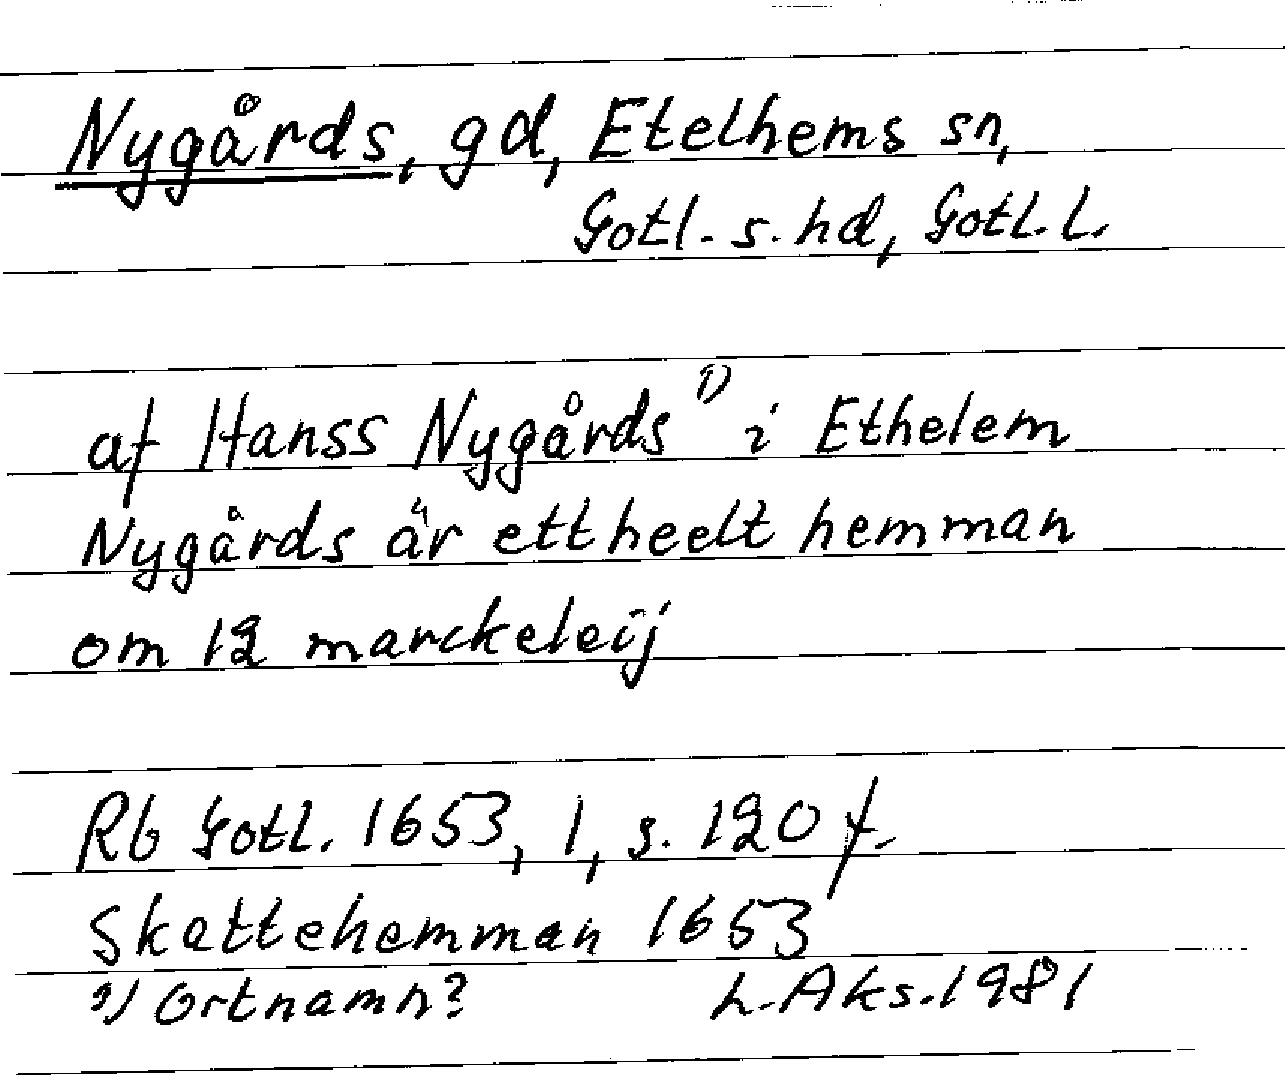 Nygårds, gd, Etelhems sn,
Gotl. s. hd, Gotl. L.
af Hanss Nygårds 1) i Ethelem
Nygårds är ett heelt hemman
om 12 marckeleij
Rb Gotl. 1653, 1, s. 120 f.
Skattehemman 1653
1) Ortnamn? L. Aks. 1981